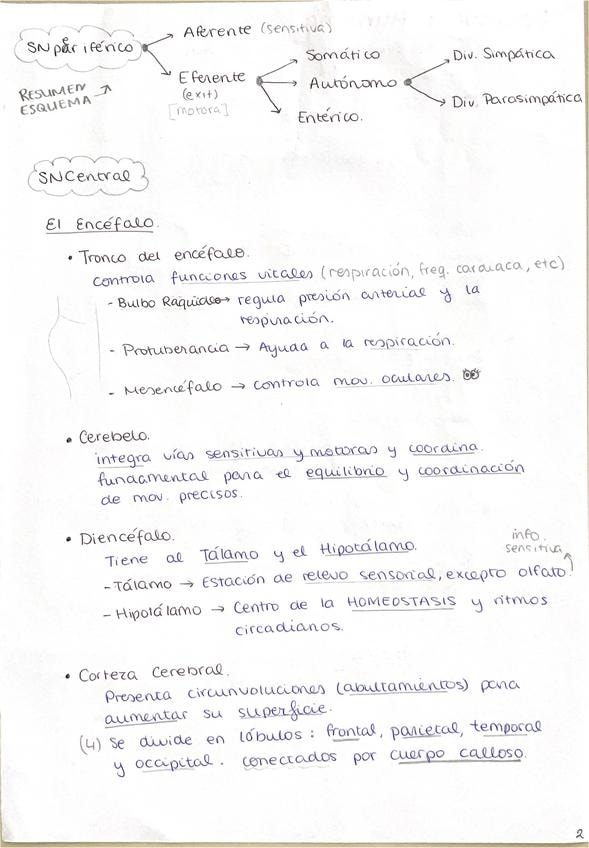 SN periférico
Aferente (sensitiva)
Eferente
(exit)
[motora]
Somático
Autónomo
Entérico.
Div. Simpática
Div. Parasimpática
RESUMEN
ESQUEMA
SNCentral
El Encéfalo.
• Tronco del encéfalo.
controla funciones vitales (respiración, freq. cardiaca, etc)
- Bulbo Raquídeo → regula presión arterial y la
respiración.
- Protuberancia → Ayuda a la respiración.
- Mesencéfalo → controla mov. oculares.
• Cerebelo.
integra vías sensitivas y motoras y coordina.
fundamental para el equilibrio y coordinación
de mov. precisos.
• Diencéfalo.
Tiene al Tálamo y el Hipotálamo.
info.
sensitiva
- Tálamo → Estación de relevo sensorial, excepto olfato.
- Hipotálamo → Centro de la HOMEOSTASIS y ritmos
circadianos.
• Corteza Cerebral.
Presenta circunvoluciones (abultamientos) para
aumentar su superficie.
(4) Se divide en lóbulos : frontal, parietal, temporal
y occipital. conectados por cuerpo calloso.
2